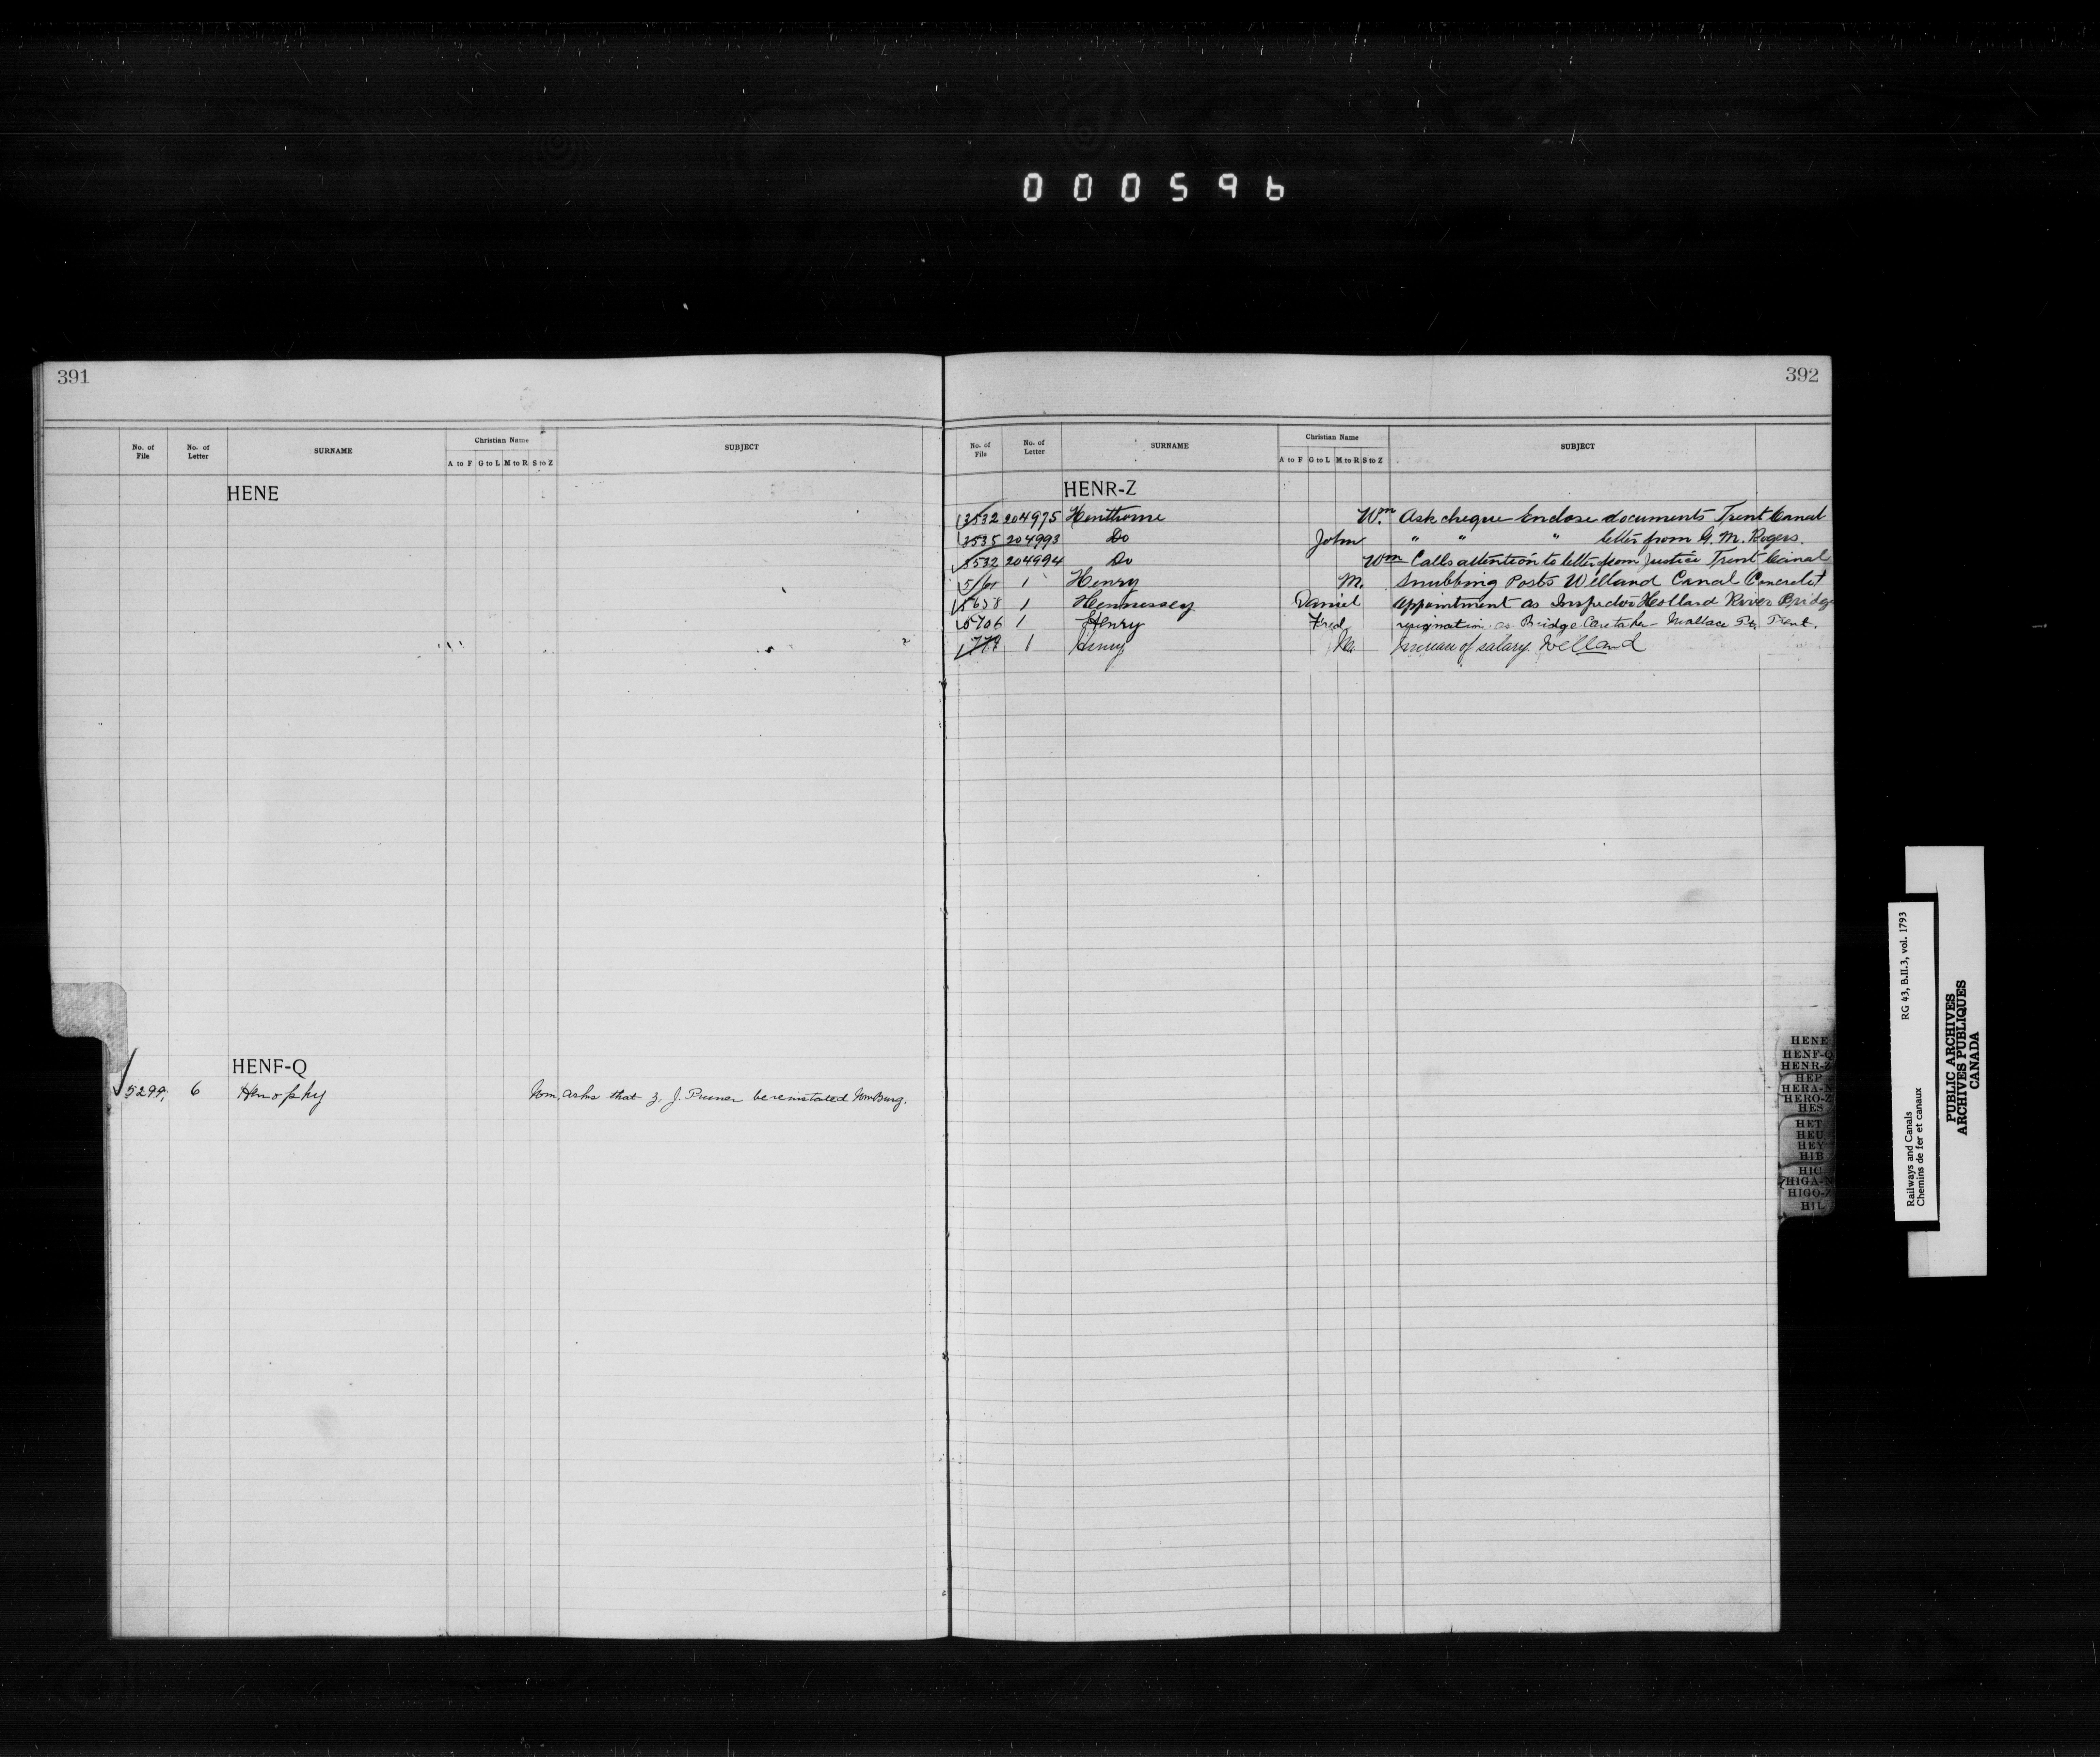 000596
391
No. of File No. of Letter SURNAME Christian Name A to F G to L M to R S to Z SUBJECT
HENE
HENF-Q
5299, 6 Henophy Wm. asks that J. Pruner be reinstated WmBurg.
392
No. of File No. of Letter SURNAME Christian Name A to F G to L M to R S to Z SUBJECT
HENR-Z
3532 204975 Henthorne Wm. Ask cheque Enclose documents Trent Canal
3535 204993 Do John " " " letter from G. M. Rogers.
3532 204994 Do Wm Calls attention to letter from Justice Trent Canal
1 Henry M. Snubbing Posts Welland Canal Concrete
5658 1 Hennessey Daniel Appointment as Inspector Holland River Bridge
5706 1 Henry Fred resignation as Bridge Caretaker - Wallace Pt. Trent.
1 Henry M. Increase of salary. Welland
HENE
HENF-Q
HENR-Z
HEP
HERA-N
HERO-Z
HES
HET
HEU
HEY
HIB
HIC
HIGA-N
HIGO-Z
HIL
Railways and Canals RG 43, B.II.3, vol. 1793
Chemins de fer et canaux
PUBLIC ARCHIVES
ARCHIVES PUBLIQUES
CANADA